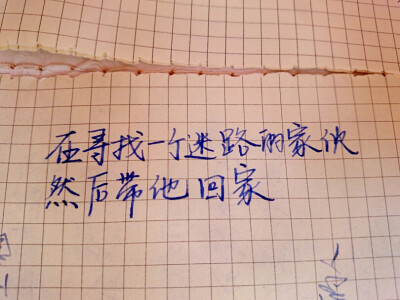 在寻找一个迷路的家伙
然后带他回家